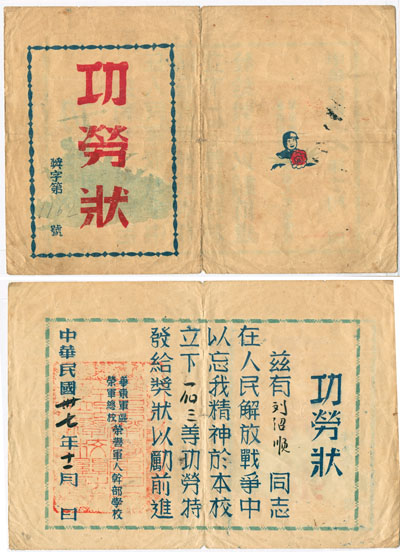 功勞狀
獎字第 號
功勞狀
茲有 同志
在人民解放戰爭中
以忘我精神於本校
立下 3等功勞特
發給獎狀以勵前進
華東軍區榮譽軍人幹部學校
榮軍總校
中華民國卅七年十二月 日